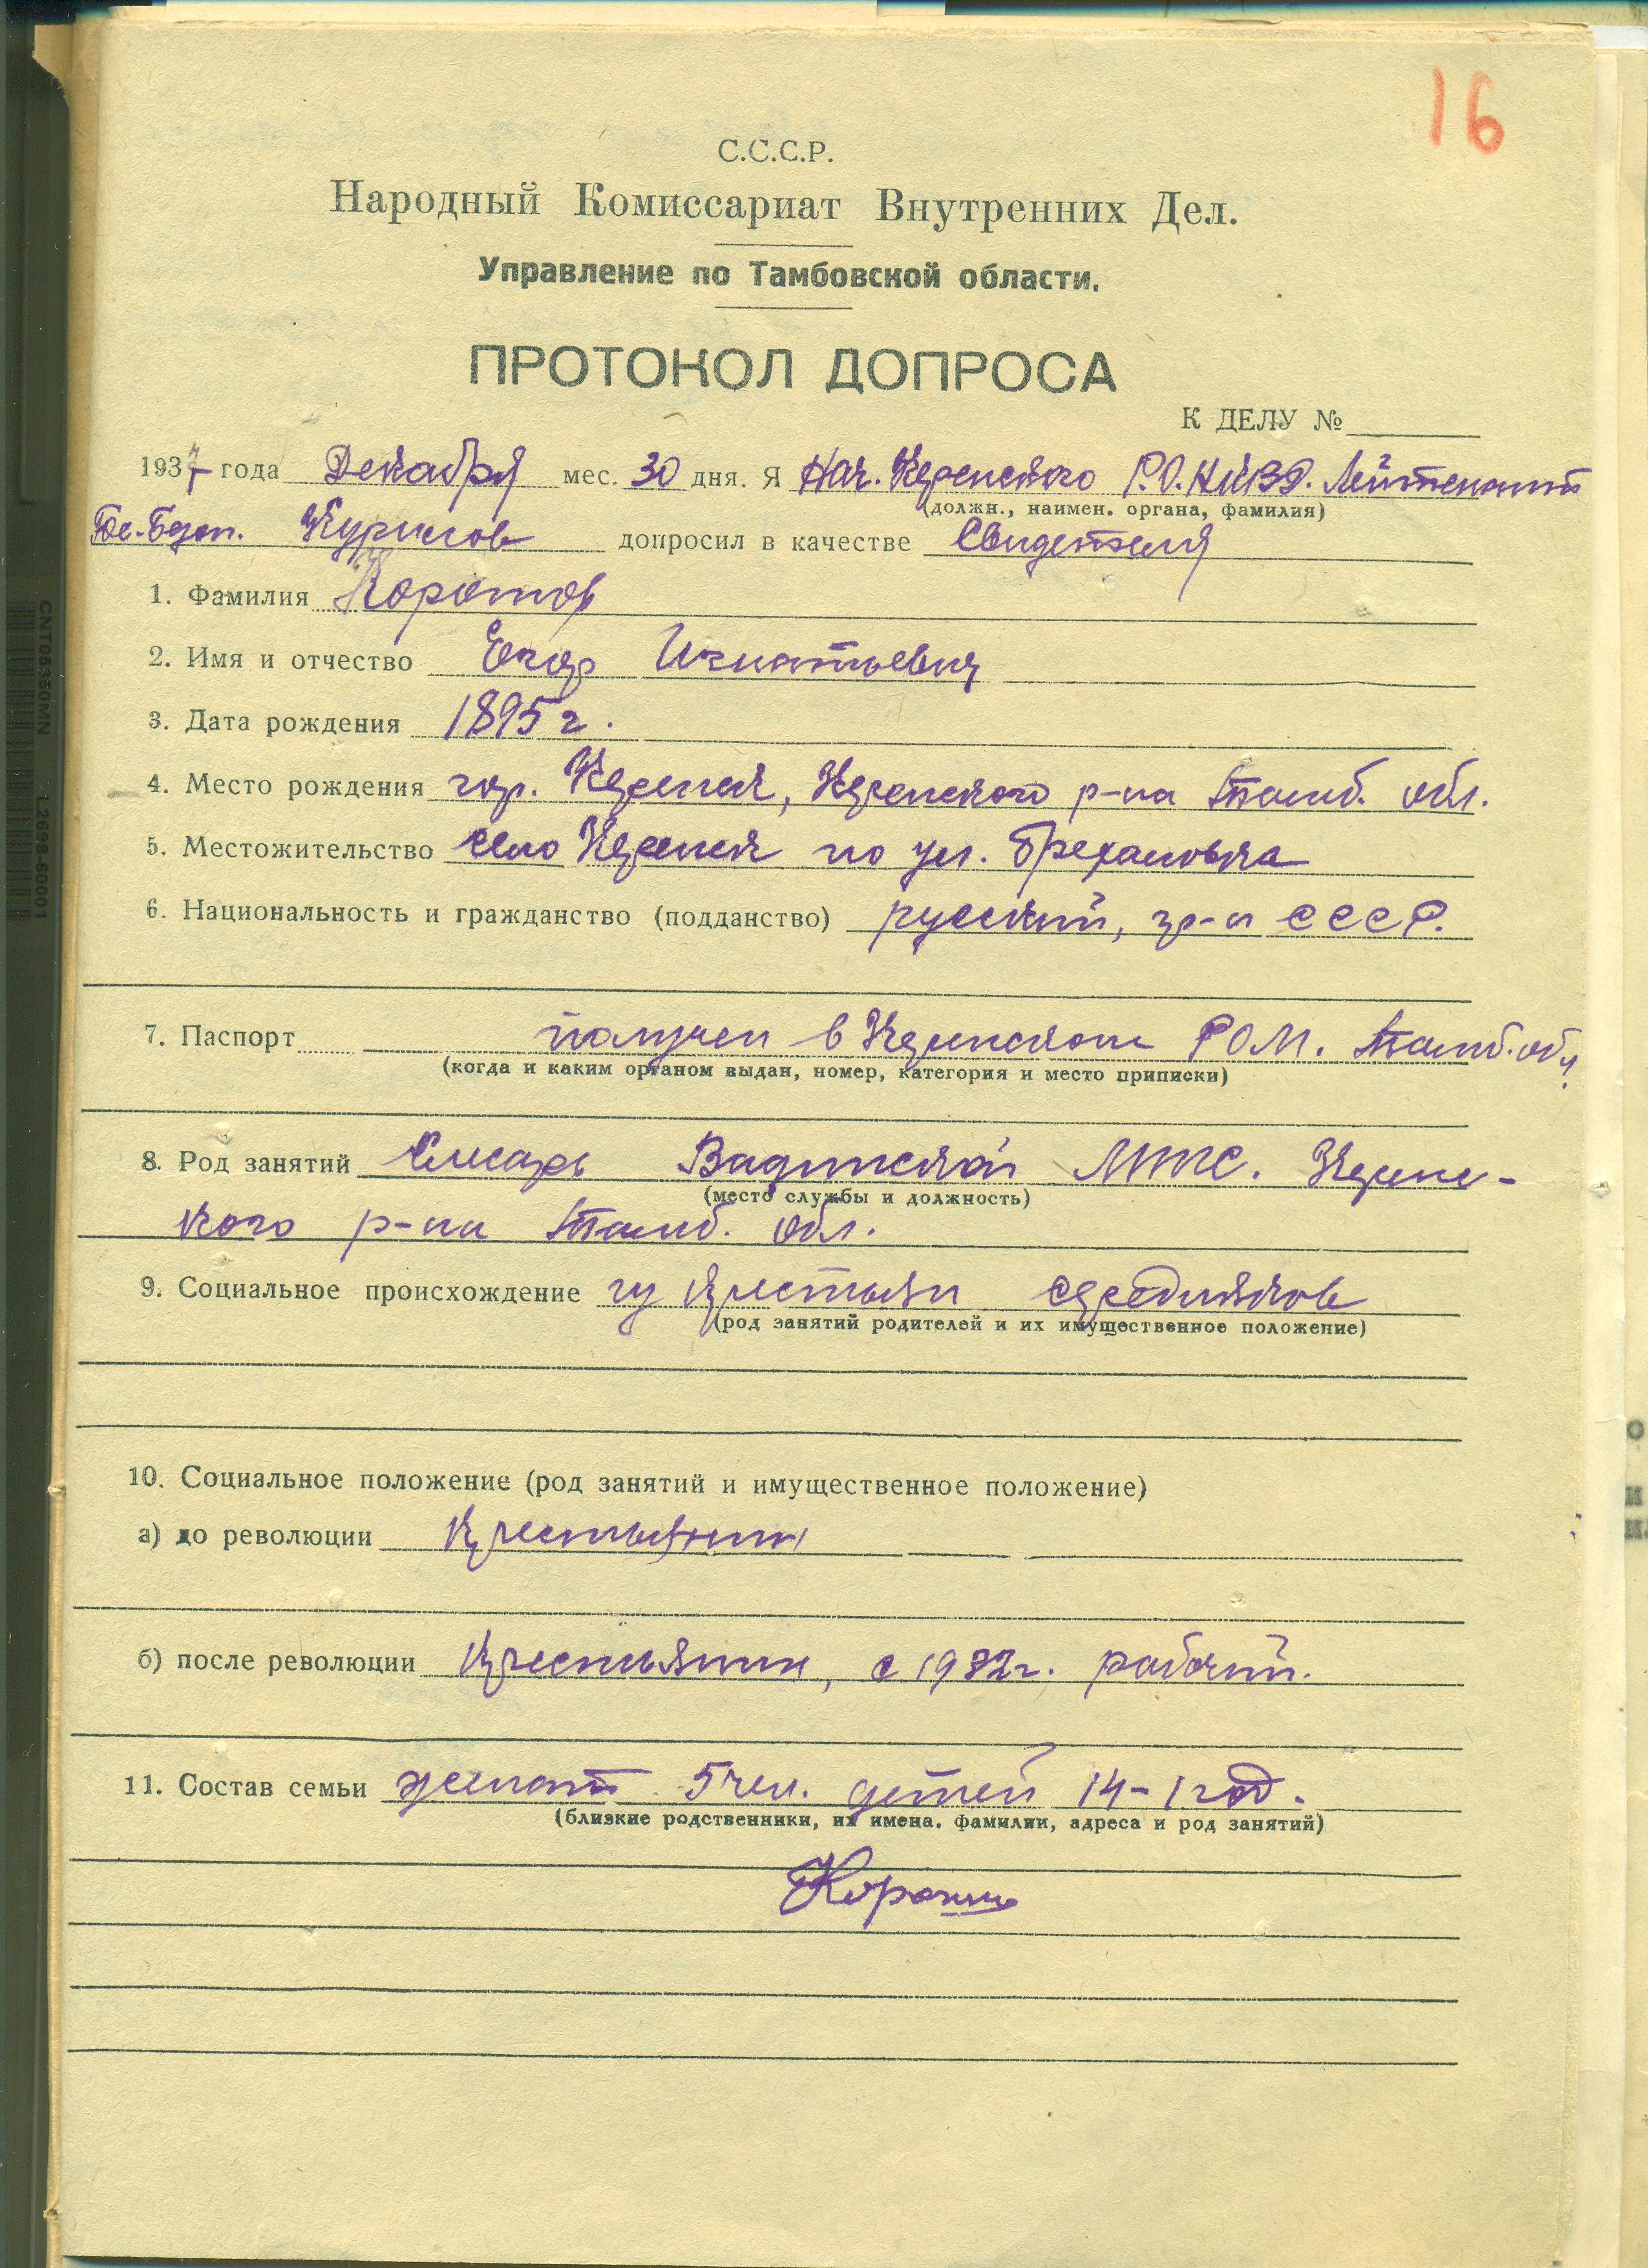 16
С.С.С.Р.
Народный Комиссариат Внутренних Дел.
Управление по Тамбовской области.
ПРОТОКОЛ ДОПРОСА
К ДЕЛУ №
1937 года Декабря мес. 30 дня. Я Нач. Керенского Р.О. НКВД. Лейтенант
(должн., наимен. органа, фамилия)
Гос. Безоп. допросил в качестве Свидетеля
1. Фамилия Коротов
2. Имя и отчество Егор Игнатьевич
3. Дата рождения 1895 г.
4. Место рождения гор. Керенск, Керенского р-на Тамб. обл.
5. Местожительство село Керенск по ул.
6. Национальность и гражданство (подданство) русский, гр-н СССР.
7. Паспорт получен в Керенском РОМ. Тамб. обл.
(когда и каким органом выдан, номер, категория и место приписки)
8. Род занятий Слесарь Вадинской МТС. Керенс-
(место службы и должность)
кого р-на Тамб. обл.
9. Социальное происхождение из крестьян середняков
(род занятий родителей и их имущественное положение)
10. Социальное положение (род занятий и имущественное положение)
а) до революции крестьянин
б) после революции крестьянин, с 1932 г. рабочий.
11. Состав семьи женат 5 чел. детей 14-1 год.
(близкие родственники, их имена. фамилии, адреса и род занятий)
CNT05350MN L2698-60001